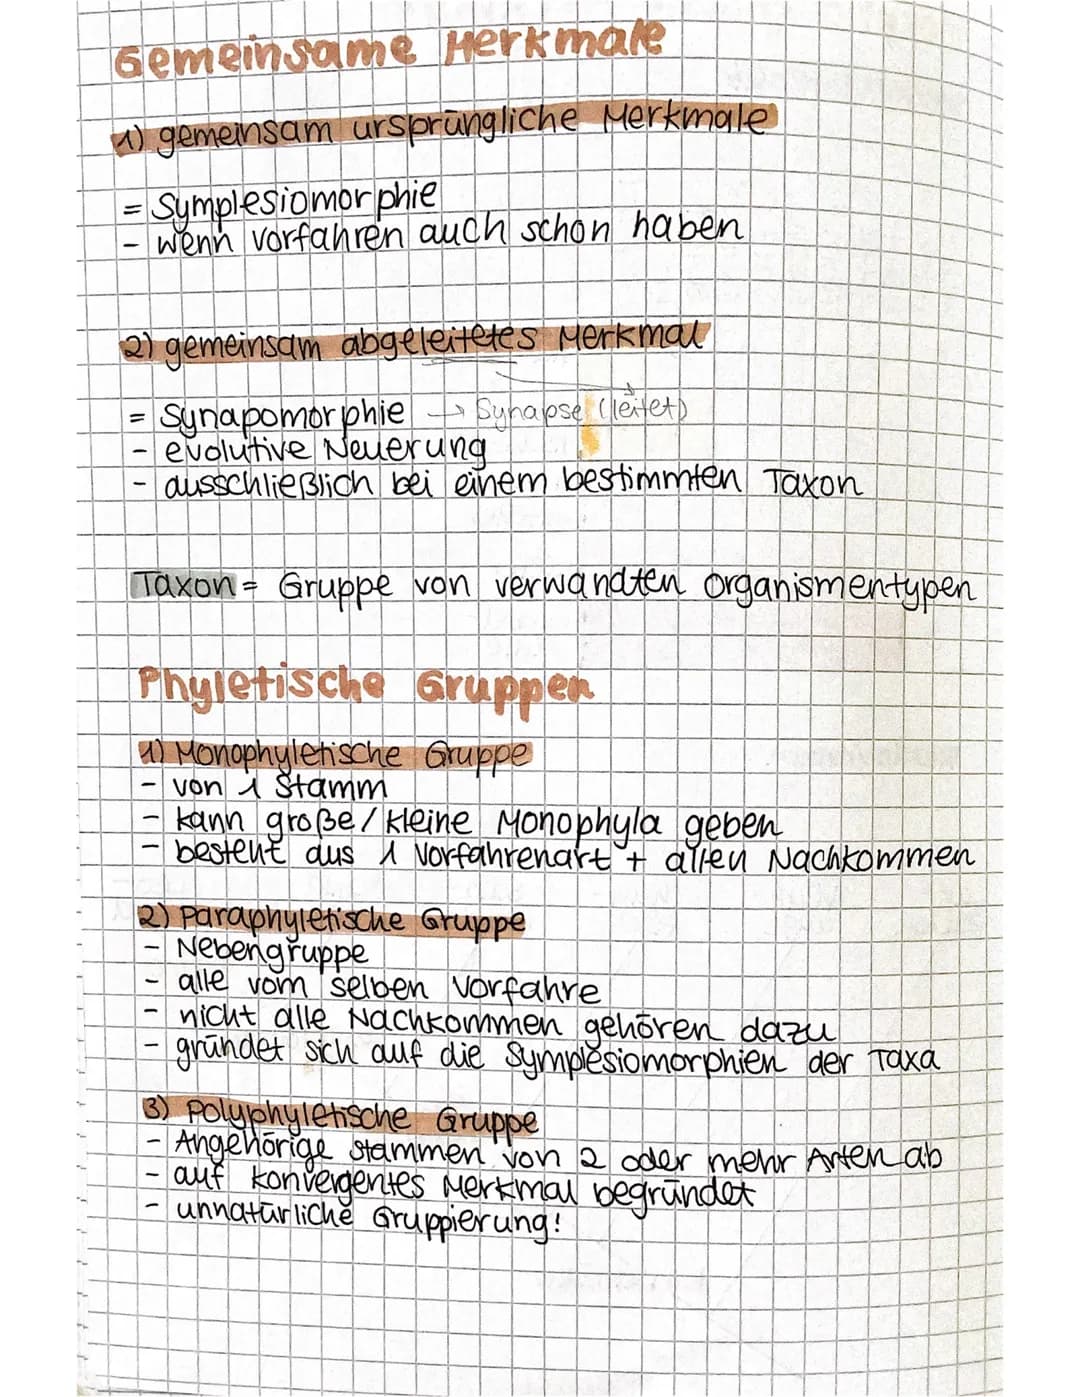 Gemeinsame Merkmale
1) gemeinsam ursprüngliche Merkmale
= Symplesiomorphie
- wenn Vorfahren auch schon haben
2) gemeinsam abgeleitetes Merkmal
= Synapomorphie → Synapse (leitet)
- evolutive Neuerung
- ausschließlich bei einem bestimmten Taxon
Taxon = Gruppe von verwandten Organismentypen
Phyletische Gruppen
1) Monophyletische Gruppe
- von 1 Stamm
- kann große/kleine Monophyla geben
- besteht aus 1 Vorfahrenart + allen Nachkommen
2) Paraphyletische Gruppe
- Nebengruppe
- alle vom selben Vorfahre
- nicht alle Nachkommen gehören dazu
- gründet sich auf die Symplesiomorphien der Taxa
3) Polyphyletische Gruppe
- Angehörige stammen von 2 oder mehr Arten ab
- auf konvergentes Merkmal begründet
- unnatürliche Gruppierung!